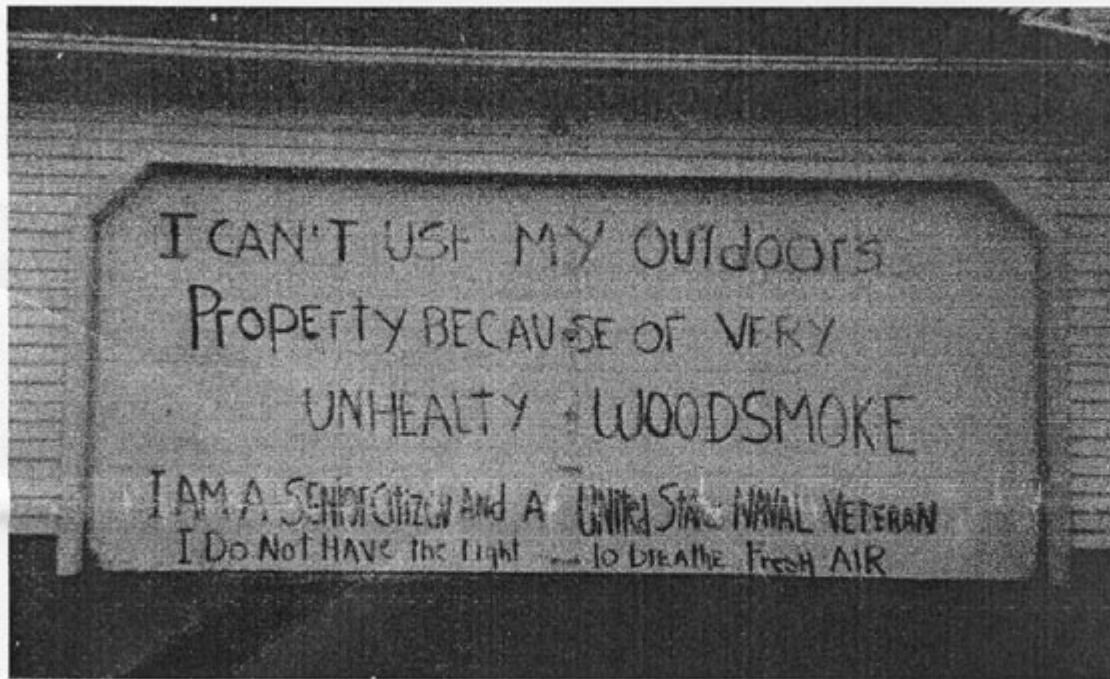 I CAN'T USE MY OUTdOOrS
PrOPErTY BECAUSE OF VERY
UNHEALTY WOODSMOKE
I AM A SENIOR CitiZEN And A UNitEd StAtES NAVAL VETERAN
I Do Not HAVE the right to brEAthe FresH AIR